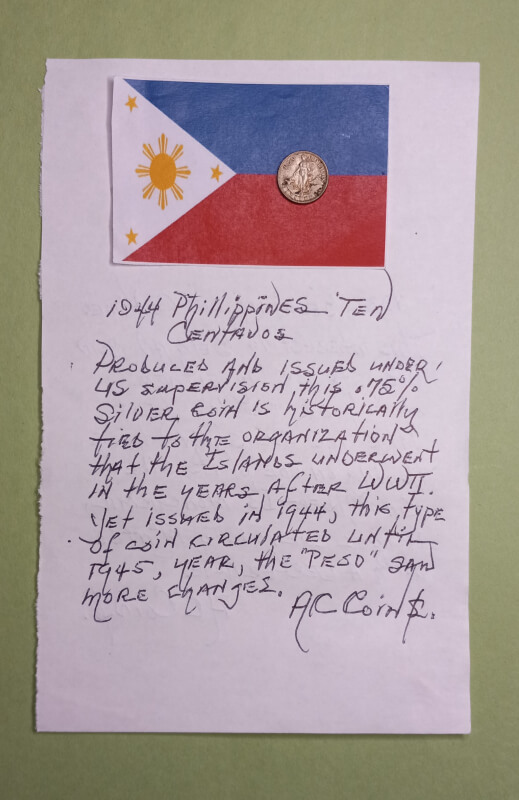 1944 PhillippiNES TEN
CENTAVOS
PRODUCED AND ISSUED UNDER
US SUPERVISION this .75%
SilVER COIN is historically
tied to the ORGANIZATION
that the ISLANDS UNDERWENT
IN the YEARS AftER WWII.
Yet issued in 1944, this type
Of coin circulated until
1945, YEAR, the "PESO" SAW
MORE changes.
AC Coin$.